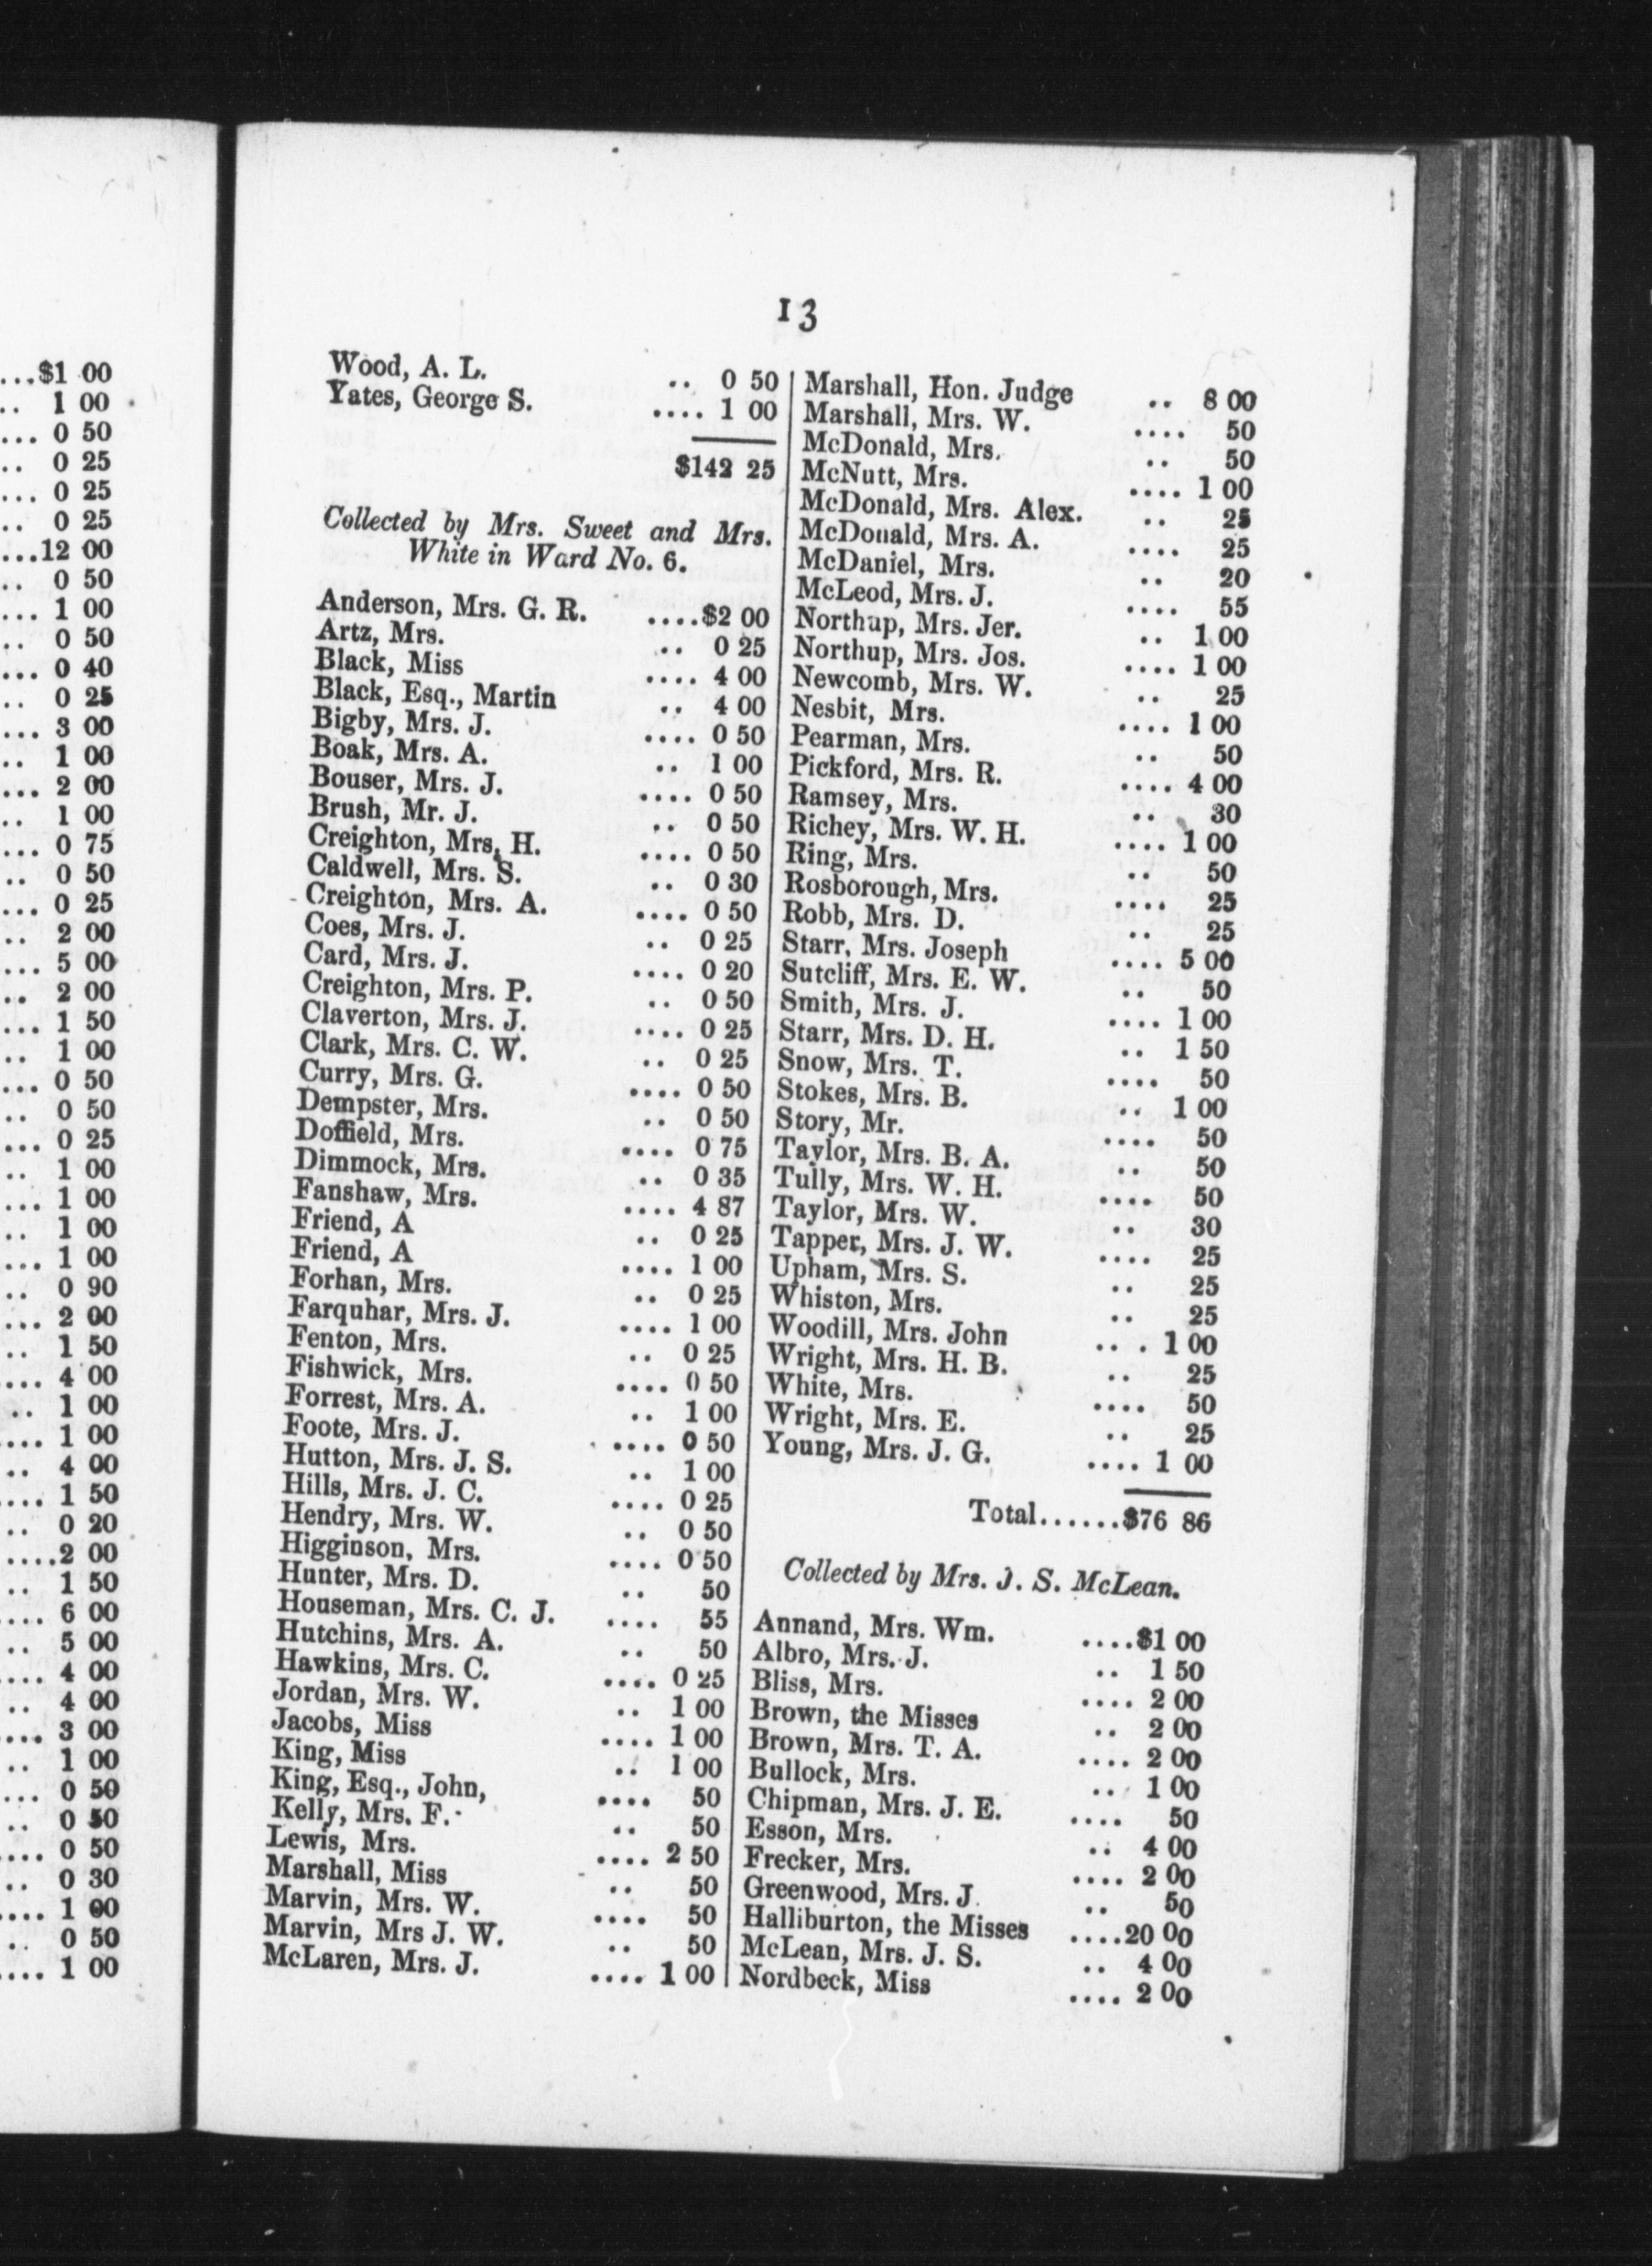 ...$1 00
.. 1 00
... 0 50
.. 0 25
... 0 25
.. 0 25
...12 00
.. 0 50
... 1 00
.. 0 50
... 0 40
.. 0 25
... 3 00
.. 1 00
... 2 00
.. 1 00
... 0 75
.. 0 50
... 0 25
.. 2 00
... 5 00
.. 2 00
... 1 50
.. 1 00
... 0 50
.. 0 50
... 0 25
.. 1 00
... 1 00
.. 1 00
... 1 00
.. 0 90
... 2 00
.. 1 50
.... 4 00
.. 1 00
.... 1 00
.. 4 00
.... 1 50
.. 0 20
....2 00
.. 1 50
.... 6 00
.. 5 00
.... 4 00
.. 4 00
.... 3 00
.. 1 00
... 0 50
.. 0 50
.... 0 50
.. 0 30
.... 1 00
.. 0 50
.... 1 00
13
Wood, A. L. .. 0 50
Yates, George S. .... 1 00
$142 25
Collected by Mrs. Sweet and Mrs.
White in Ward No. 6.
Anderson, Mrs. G. R. ....$2 00
Artz, Mrs. .. 0 25
Black, Miss .... 4 00
Black, Esq., Martin .. 4 00
Bigby, Mrs. J. .... 0 50
Boak, Mrs. A. .. 1 00
Bouser, Mrs. J. .... 0 50
Brush, Mr. J. .. 0 50
Creighton, Mrs. H. .... 0 50
Caldwell, Mrs. S. .. 0 30
Creighton, Mrs. A. .... 0 50
Coes, Mrs. J. .. 0 25
Card, Mrs. J. .... 0 20
Creighton, Mrs. P. .. 0 50
Claverton, Mrs. J. .... 0 25
Clark, Mrs. C. W. .. 0 25
Curry, Mrs. G. .... 0 50
Dempster, Mrs. .. 0 50
Doffield, Mrs. .... 0 75
Dimmock, Mrs. .. 0 35
Fanshaw, Mrs. .... 4 87
Friend, A .. 0 25
Friend, A .... 1 00
Forhan, Mrs. .. 0 25
Farquhar, Mrs. J. .... 1 00
Fenton, Mrs. .. 0 25
Fishwick, Mrs. .... 0 50
Forrest, Mrs. A. .. 1 00
Foote, Mrs. J. .... 0 50
Hutton, Mrs. J. S. .. 1 00
Hills, Mrs. J. C. .... 0 25
Hendry, Mrs. W. .. 0 50
Higginson, Mrs. .... 0 50
Hunter, Mrs. D. .. 50
Houseman, Mrs. C. J. .... 55
Hutchins, Mrs. A. .. 50
Hawkins, Mrs. C. .... 0 25
Jordan, Mrs. W. .. 1 00
Jacobs, Miss .... 1 00
King, Miss .. 1 00
King, Esq., John, .... 50
Kelly, Mrs. F. .. 50
Lewis, Mrs. .... 2 50
Marshall, Miss .. 50
Marvin, Mrs. W. .... 50
Marvin, Mrs J. W. .. 50
McLaren, Mrs. J. .... 1 00
Marshall, Hon. Judge .. 8 00
Marshall, Mrs. W. .... 50
McDonald, Mrs. .. 50
McNutt, Mrs. .... 1 00
McDonald, Mrs. Alex. .. 25
McDonald, Mrs. A. .... 25
McDaniel, Mrs. .. 20
McLeod, Mrs. J. .... 55
Northup, Mrs. Jer. .. 1 00
Northup, Mrs. Jos. .... 1 00
Newcomb, Mrs. W. .. 25
Nesbit, Mrs. .... 1 00
Pearman, Mrs. .. 50
Pickford, Mrs. R. .... 4 00
Ramsey, Mrs. .. 30
Richey, Mrs. W. H. .... 1 00
Ring, Mrs. .. 50
Rosborough, Mrs. .... 25
Robb, Mrs. D. .. 25
Starr, Mrs. Joseph .... 5 00
Sutcliff, Mrs. E. W. .. 50
Smith, Mrs. J. .... 1 00
Starr, Mrs. D. H. .. 1 50
Snow, Mrs. T. .... 50
Stokes, Mrs. B. .. 1 00
Story, Mr. .... 50
Taylor, Mrs. B. A. .. 50
Tully, Mrs. W. H. .... 50
Taylor, Mrs. W. .. 30
Tapper, Mrs. J. W. .... 25
Upham, Mrs. S. .. 25
Whiston, Mrs. .. 25
Woodill, Mrs. John .. . 1 00
Wright, Mrs. H. B. .. 25
White, Mrs. .... 50
Wright, Mrs. E. .. 25
Young, Mrs. J. G. .... 1 00
Total......$76 86
Collected by Mrs. J. S. McLean.
Annand, Mrs. Wm. ....$1 00
Albro, Mrs. J. .. 1 50
Bliss, Mrs. .... 2 00
Brown, the Misses .. 2 00
Brown, Mrs. T. A. .... 2 00
Bullock, Mrs. .. 1 00
Chipman, Mrs. J. E. .... 50
Esson, Mrs. .. 4 00
Frecker, Mrs. .... 2 00
Greenwood, Mrs. J. .. 50
Halliburton, the Misses ....20 00
McLean, Mrs. J. S. .. 4 00
Nordbeck, Miss .... 2 00